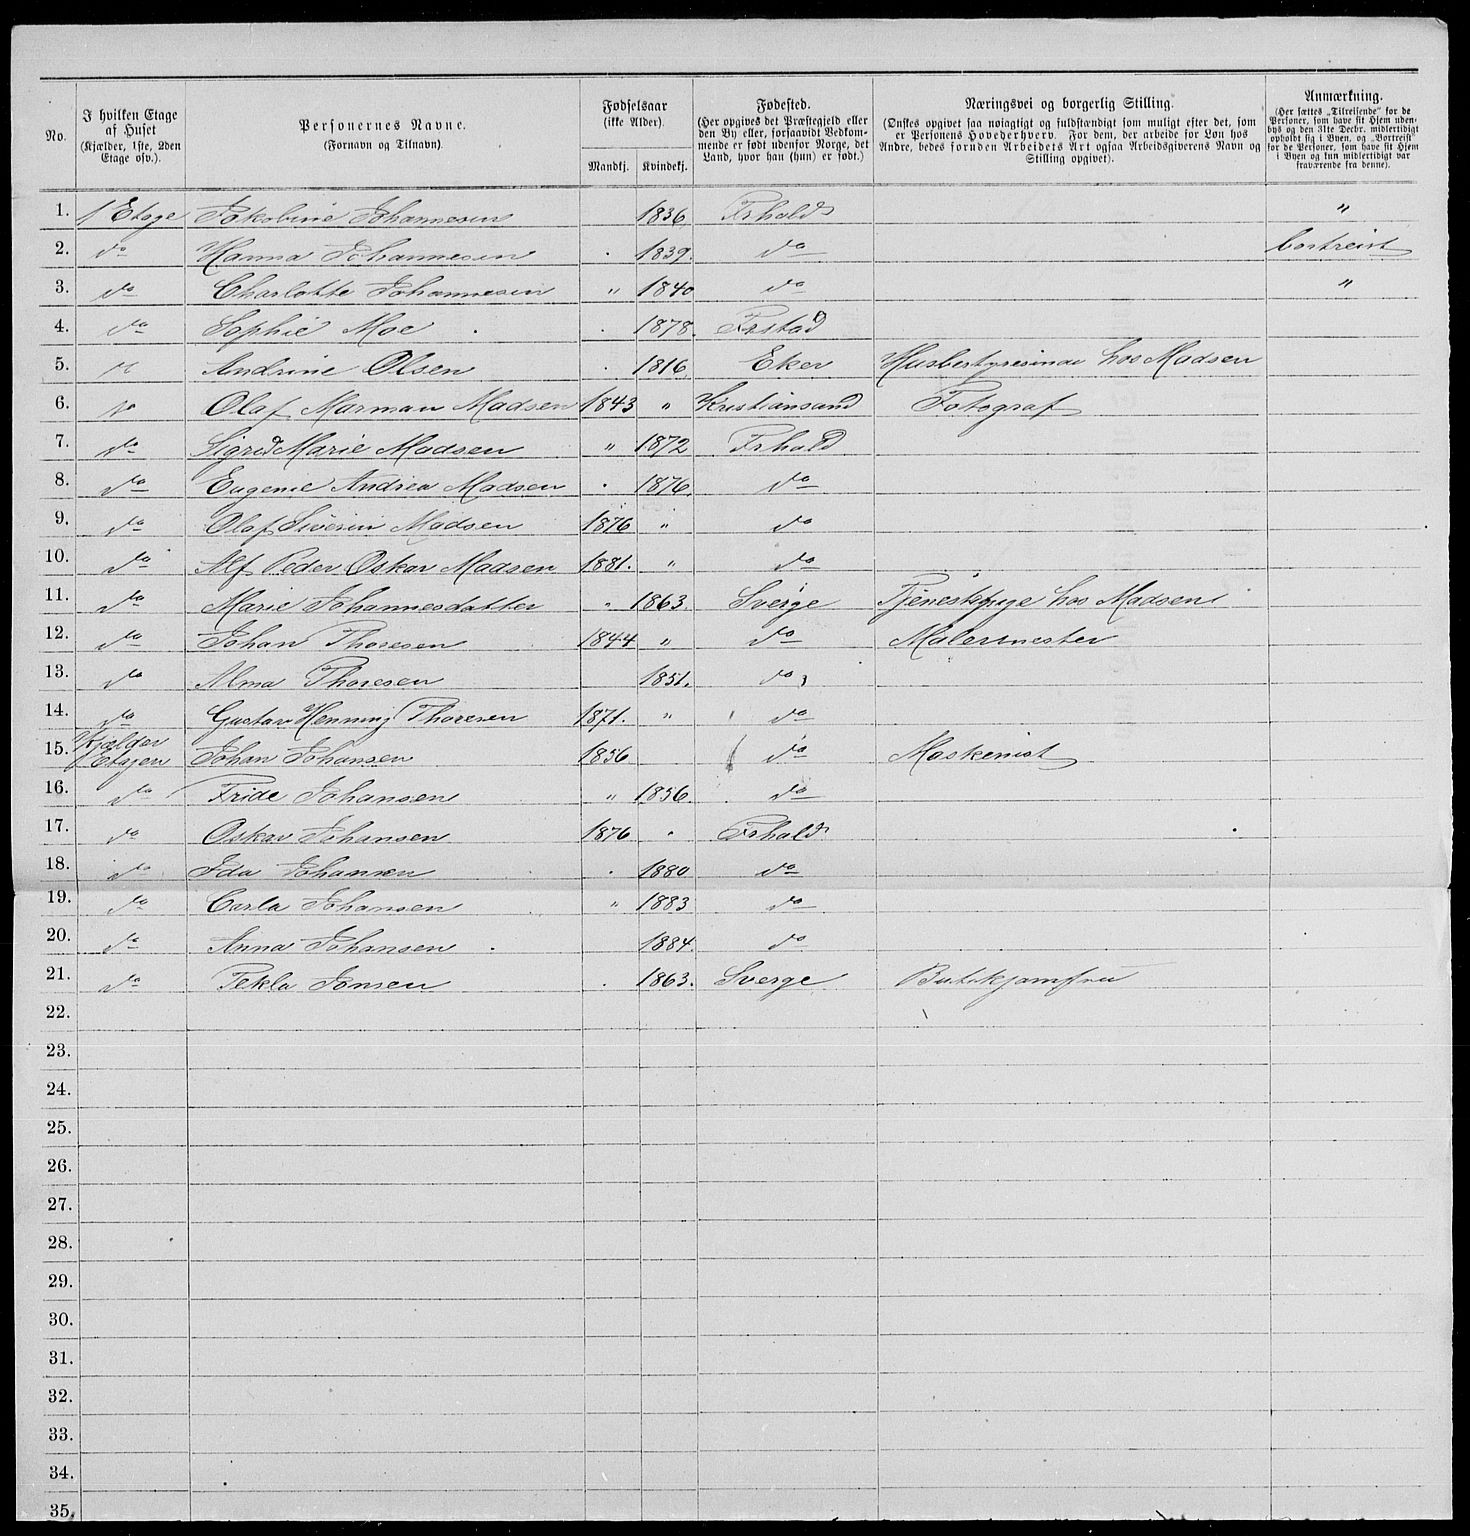 No. | I hvilken Etage af Huset (Kjælder, 1ste, 2den Etage osv.). | Personernes Navne. (Fornavn og Tilnavn). | Fødselsaar (ikke Alder). Mandkj. | Kvindekj. | Fødested. (Her opgives det Præstegjeld eller den By eller, forsaavidt Bedkommende er født udenfor Norge, det Land, hvor han (hun) er født.) | Næringsvei og borgerlig Stilling. (Ønskes opgivet saa nøiagtigt og fuldstændigt som muligt efter det, som er Personens Hovederhverv. For dem, der arbeide for Løn hos Andre, bedes foruden Arbeidets Art ogsaa Arbeidsgiverens Navn og Stilling opgivet). | Anmærkning. (Her sættes „Tilreisende" for de Personer, som have sit Hjem udenbys og den 31te Decbr. midlertidigt opholdt sig i Byen, og „Bortreist" for de Personer, som have sit Hjem i Byen og kun midlertidigt var fraværende fra denne).
1. 1 Etage Jakobine Johannesen 1836 Frhald "
2. do Hanna Johannesen 1839. do bortreist
3. do Charlotte Johannesen " 1840 do "
4. do Sophie Moe 1878. Frstad
5. Andrine Olsen 1816 Eker Husbestyresinde hos Madsen
6. do Olaf Marman Madsen 1843 " Kristiansand Fotograf
7. do Sigrid Marie Madsen " 1872 Frhald
8. do Eugenie Andrea Madsen 1876. do
9. do Olaf Siverin Madsen 1876 " do
10. do Alf Peder Oskar Madsen 1881. " do
11. do Marie Johannesdatter " 1863. Sverge Tjenestepige hos Madsen
12. do Johan Thoresen 1844 " do Malermester
13. do Alma Thoresen 1851. do
14. do Gustav Henning Thoresen 1871. " do
15. Kjelder Etagen Johan Johansen 1856 do Maskenist
16. do Fride Johansen " 1856. do
17. do Oskar Johansen 1876 " Frhald
18. do Ida Johansen 1880 do
19. do Carla Johansen " 1883 do
20. do Anna Johansen 1884. do
21. do Tekla Jonsen 1863. Sverge Butikjomfru
22.
23.
24.
25.
26.
27.
28.
29.
30.
31.
32.
33.
34.
35.